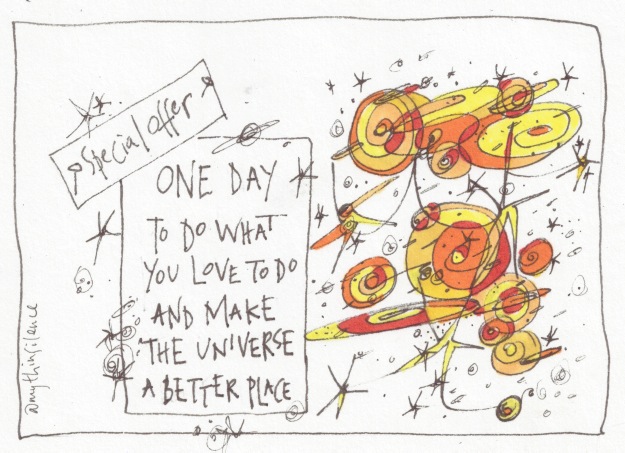 Special Offer
ONE DAY
TO DO WHAT
YOU LOVE TO DO
AND MAKE
THE UNIVERSE
A BETTER PLACE
@mythinsilence